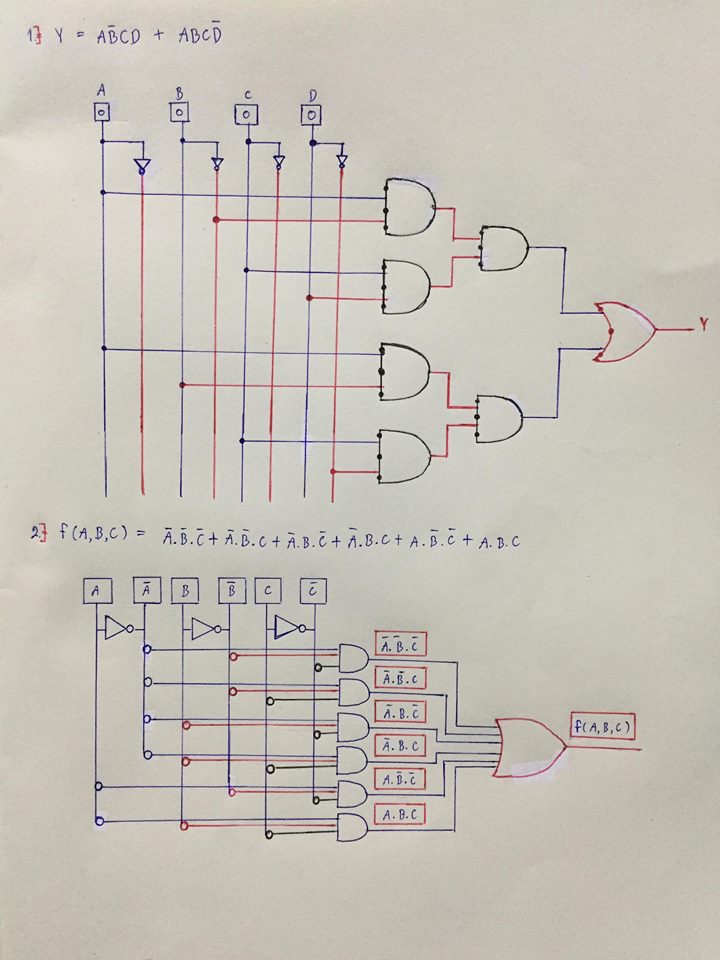 1] Y = AB̄CD + ABCD̄
A B C D
Y
2] f(A,B,C) = Ā.B̄.C̄ + Ā.B̄.C + Ā.B.C̄ + Ā.B.C + A.B̄.C̄ + A.B.C
A Ā B B̄ C C̄
Ā.B̄.C̄
Ā.B̄.C
Ā.B.C̄
f(A,B,C)
Ā.B.C
A.B̄.C̄
A.B.C